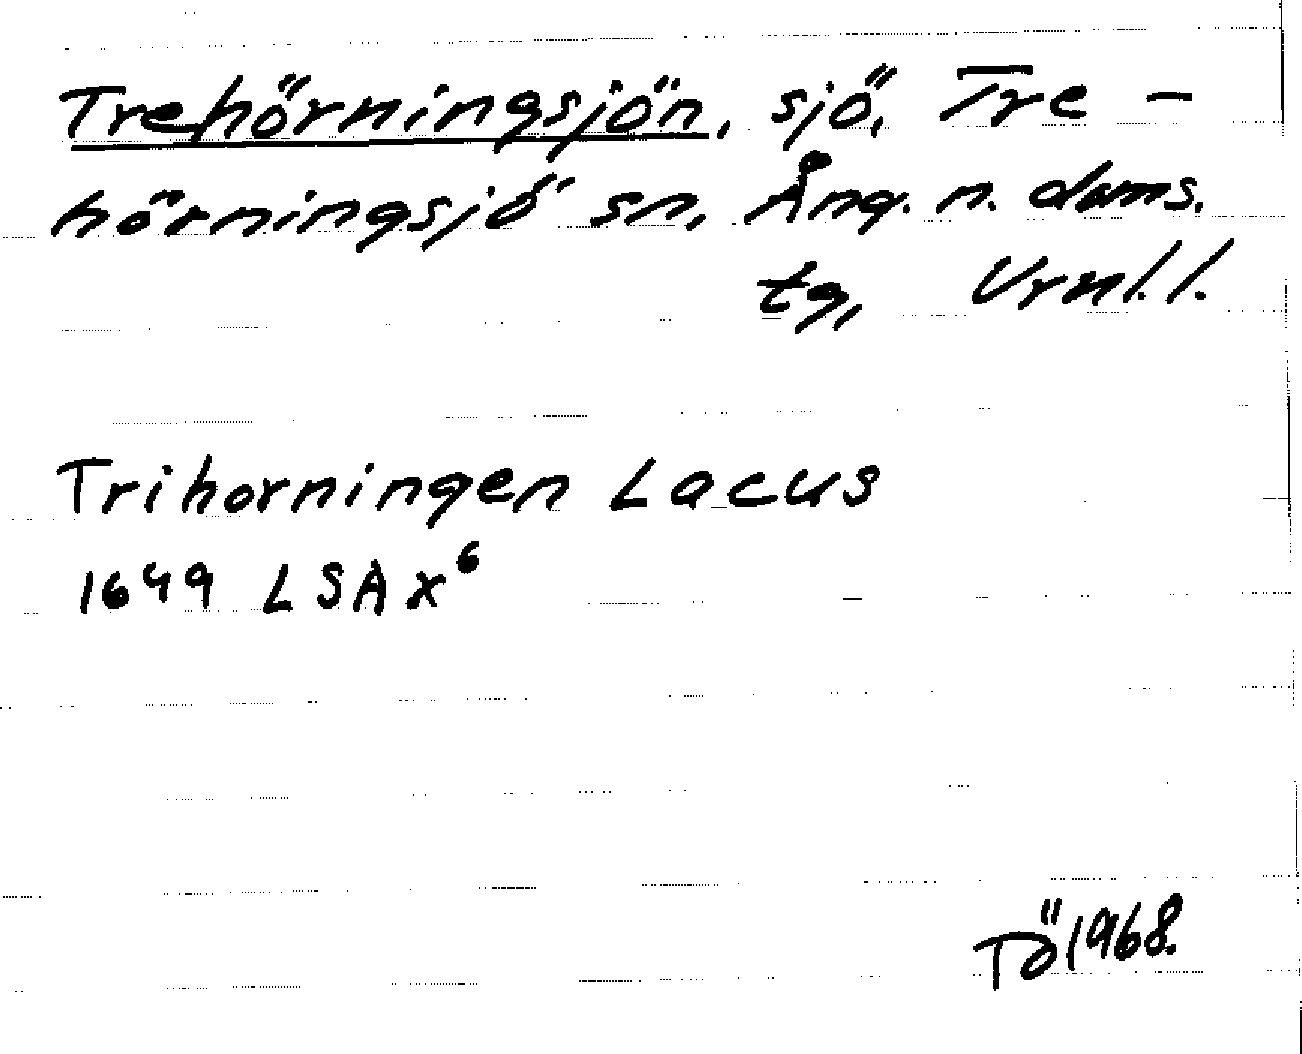 Trehörningsjön, sjö, Tre-
hörningsjö sn, Ång. n. doms.
tg, Vrml.l.
Trihorningen Lacus
1649 LSA X6
TÖ 1968.